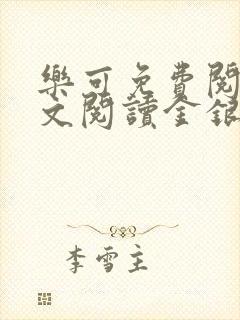 樂可免費閱
文閱讀金銀
李雪主